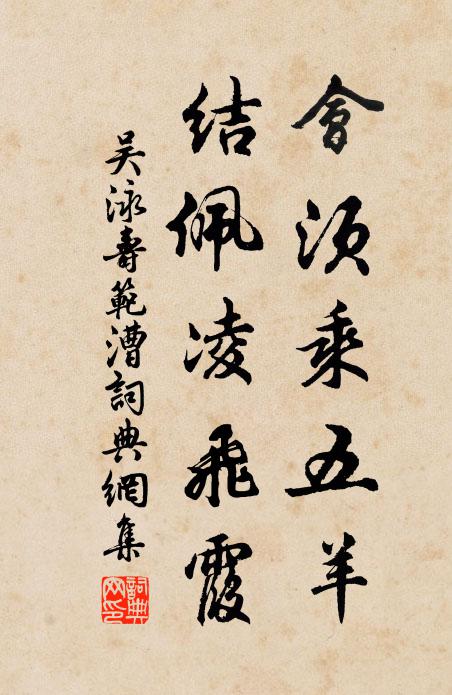 會須乘五羊
結佩凌飛霞
吳泳壽範漕詞典網集
詞典网印